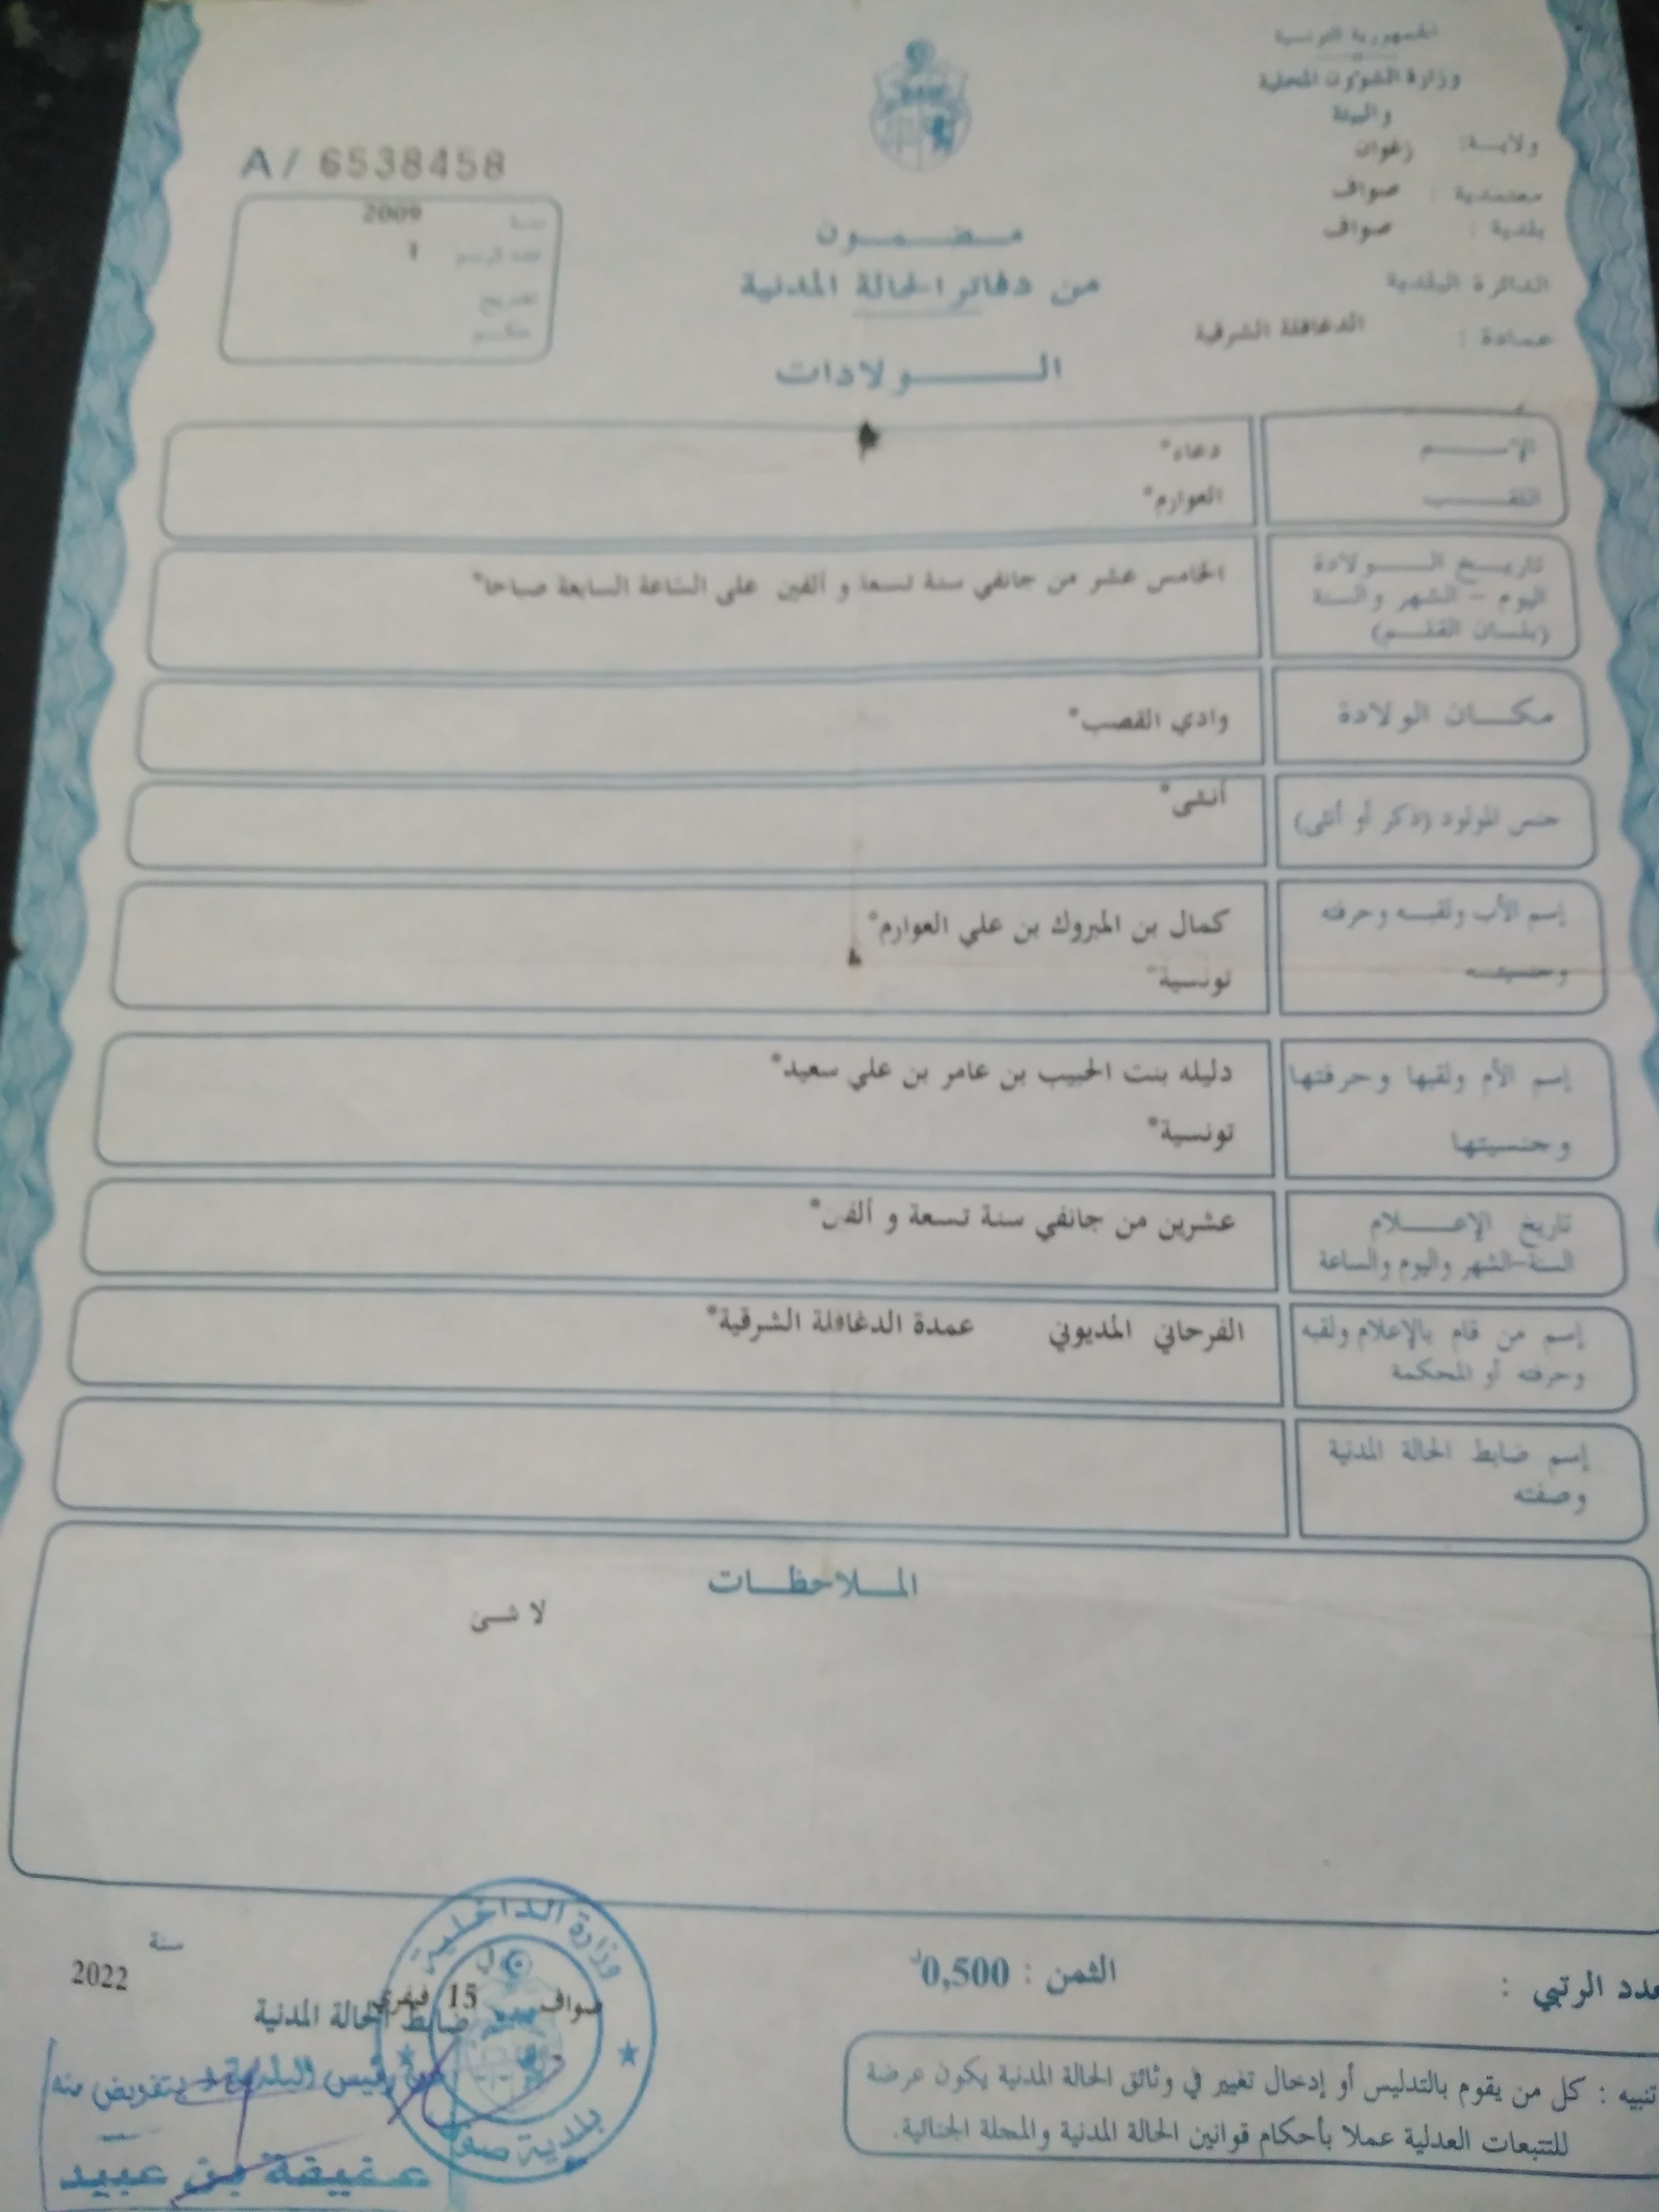 الجمهورية التونسية
وزارة الشؤون المحلية
والبيئة
ولاية: زغوان
معتمدية : صواف
بلدية : صواف
الدائرة البلدية
عمادة : الدغافلة الشرقية
A / 6538458
سنة 2009
عدد الرسم 1
تصريح
حكم
مضمون
من دفاتر الحالة المدنية
الولادات
الإسم دعاء*
اللقب العوارم*
تاريخ الولادة
اليوم - الشهر والسنة
(بلسان القلم)
الخامس عشر من جانفي سنة تسعة و ألفين على الساعة السابعة صباحا*
مكان الولادة وادي القصب*
جنس المولود (ذكر أو أنثى) أنثى*
إسم الأب ولقبه وحرفته كمال بن المبروك بن علي العوارم*
وجنسيته تونسية*
إسم الأم ولقبها وحرفتها دليله بنت الحبيب بن عامر بن علي سعيد*
وجنسيتها تونسية*
تاريخ الإعلام عشرين من جانفي سنة تسعة و ألفن*
السنة-الشهر واليوم والساعة
إسم من قام بالإعلام ولقبه الفرحاني المديوني عمدة الدغافلة الشرقية*
وحرفته أو المحكمة
إسم ضابط الحالة المدنية
وصفته
الملاحظات
لا شئ
عدد الرتبي :
الثمن : 0,500د
صواف 15 فيفري سنة 2022
ضابط الحالة المدنية
عن رئيس البلدية وبتفويض منه
عفيفة بن عبيد
وزارة الداخلية
بلدية صواف
تنبيه : كل من يقوم بالتدليس أو إدخال تغيير في وثائق الحالة المدنية يكون عرضة
للتتبعات العدلية عملا بأحكام قوانين الحالة المدنية والمجلة الجنائية.